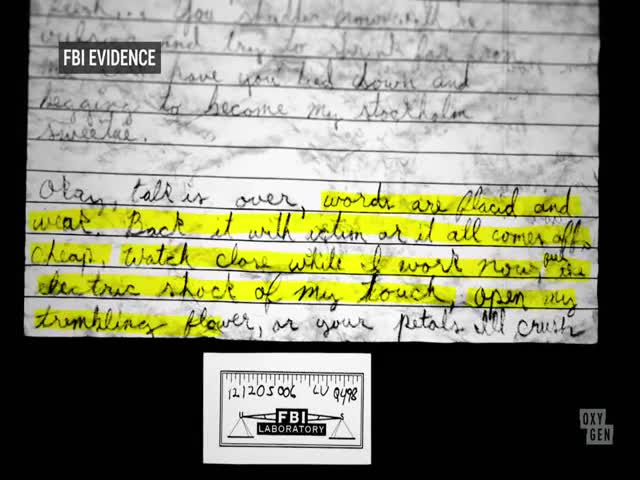 You shudder re
vulsion and try to shrink far from
have you tied down and
begging to become my stockholm
sweetie.
FBI EVIDENCE
Okay, talk is over, words are placid and
weak. Back it with action or it all comes off
cheap. Watch close while I work now, feel the
electric shock of my touch, open my
trembling flower, or your petals I'll crush
121205006 LV Q498
U S
FBI
LABORATORY
OXY
GEN